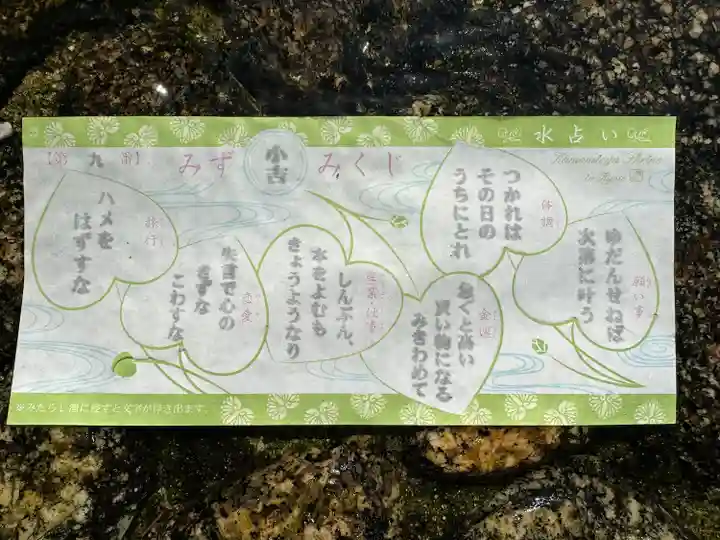 水占い
Shimenawa
みず
小吉
みくじ
九
願い事
ゆだんせねば
次第に叶う
体調
つかれは
その日の
うちにとれ
金運
急ぐと高い
買い物になる
みきわめて
しんぶん、
本をよむも
きょうようなり
恋愛
失言で心の
きずな
こわすな
旅行
ハメを
はずすな
※みたらし池に浸すと文字が浮き出ます。